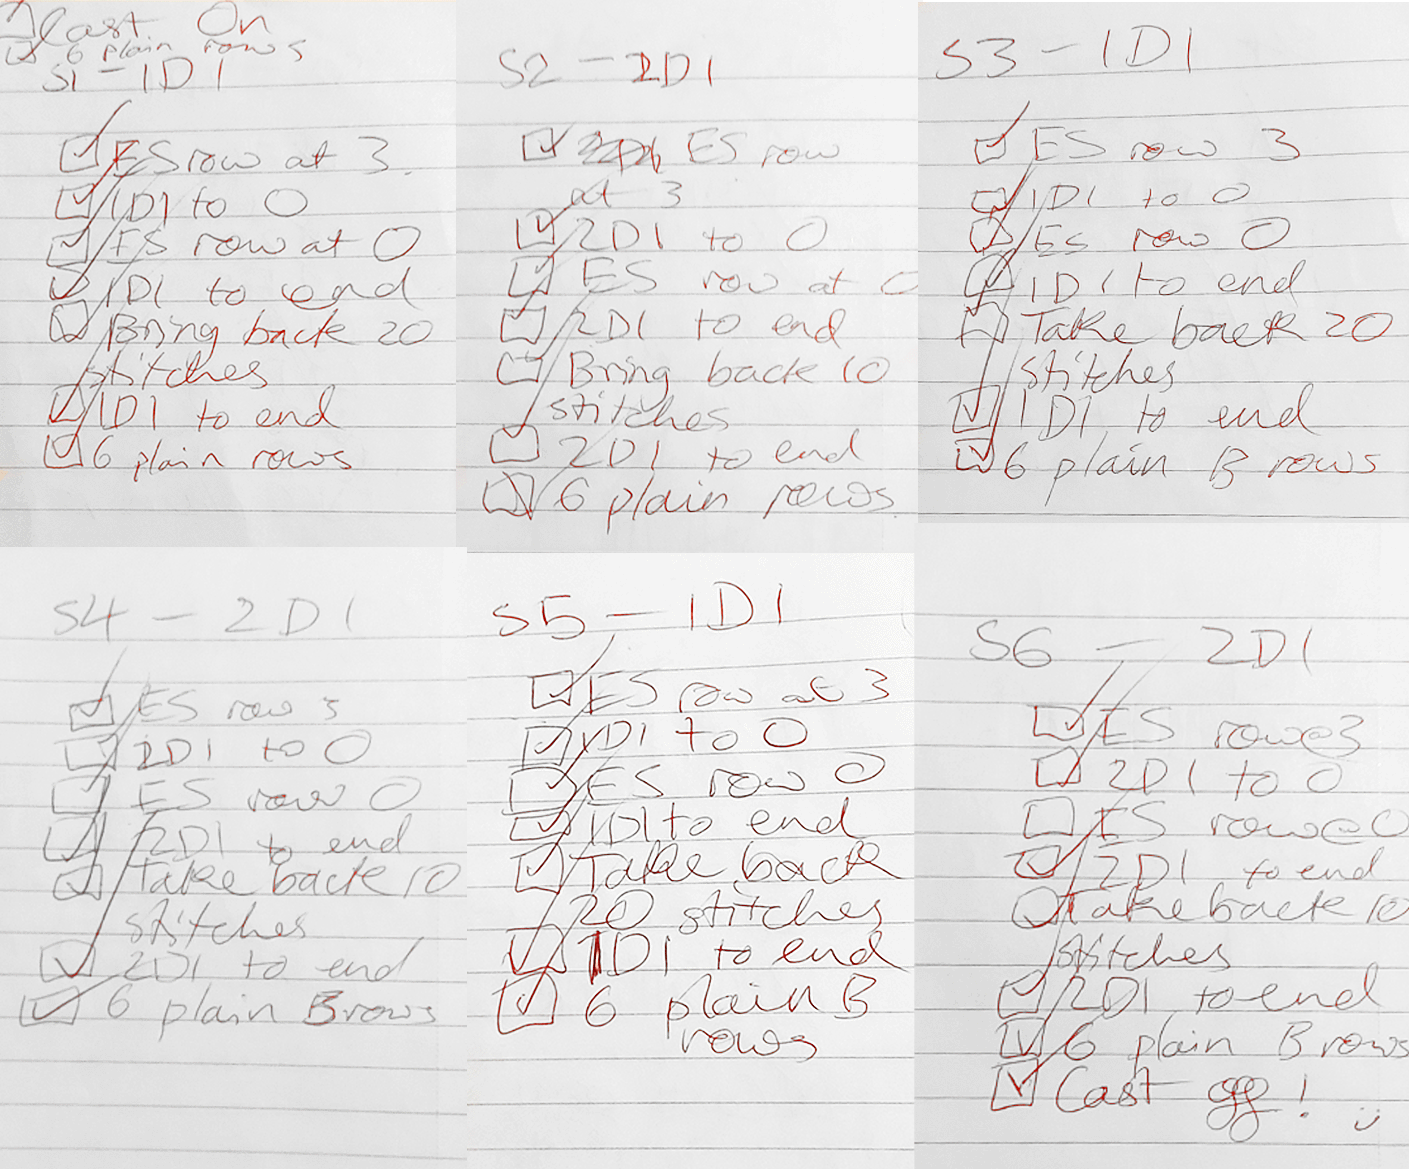 Cast On
6 plain rows
S1 - 1D1
ES row at 3.
1D1 to 0
ES row at 0
1D1 to end
Bring back 20
stitches
1D1 to end
6 plain rows
S2 - 2D1
ES row
at 3
2D1 to 0
ES row at 0
2D1 to end
Bring back 10
stitches
2D1 to end
6 plain rows
S3 - 1D1
ES row 3
1D1 to 0
ES row 0
1D1 to end
Take back 20
stitches
1D1 to end
6 plain B rows
S4 - 2D1
ES row 3
2D1 to 0
ES row 0
2D1 to end
Take back 10
stitches
2D1 to end
6 plain B rows
S5 - 1D1
ES row at 3
1D1 to 0
ES row 0
1D1 to end
Take back
20 stitches
1D1 to end
6 plain B
rows
S6 - 2D1
ES row@3
2D1 to 0
ES row@0
2D1 to end
Take back 10
stitches
2D1 to end
6 plain B rows
Cast off! :)